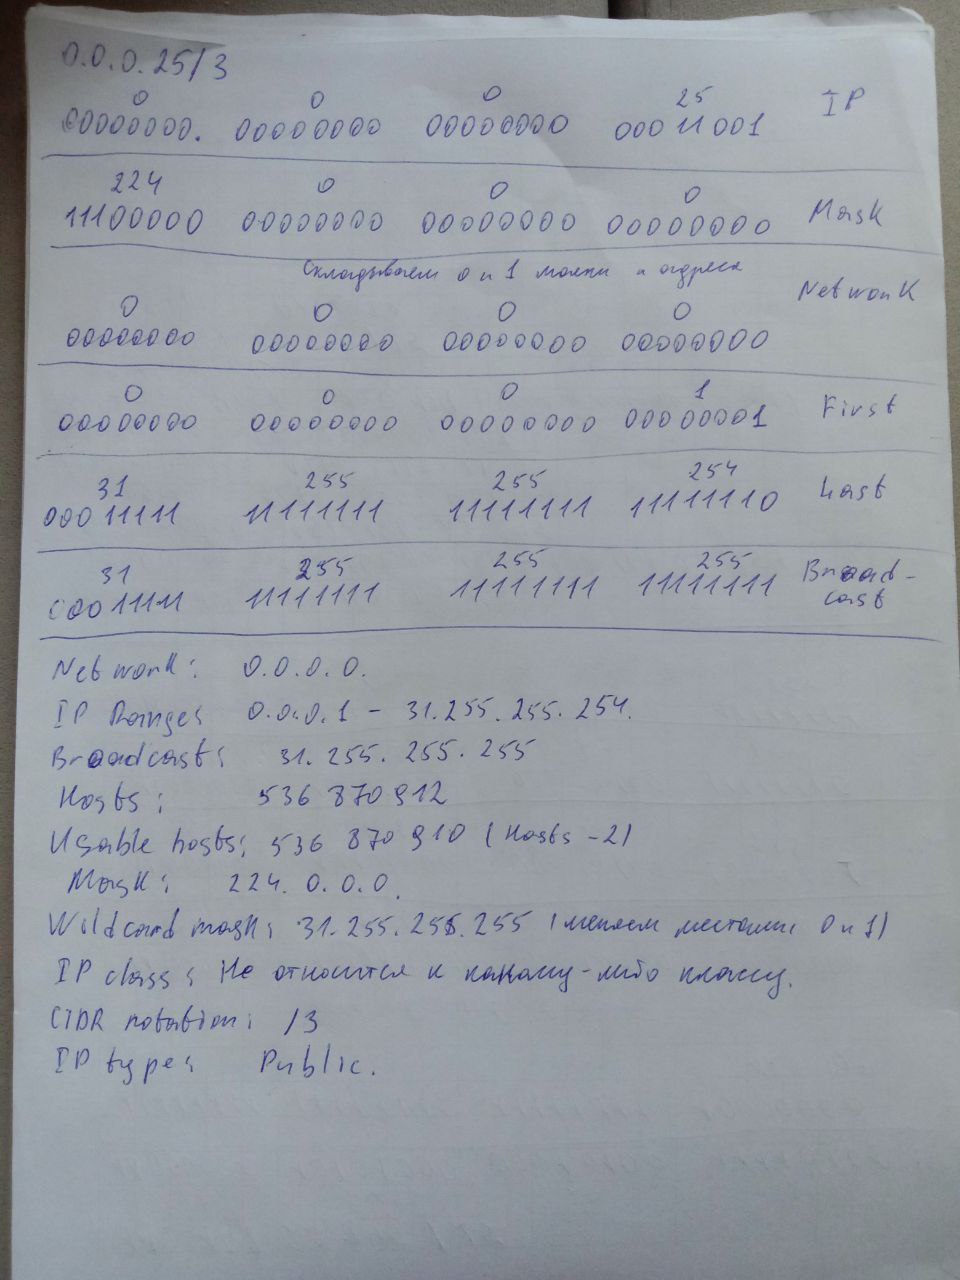 0.0.0.25/3
0 0 0 25 IP
00000000. 00000000 00000000 00011001
224 0 0 0 Mask
11100000 00000000 00000000 00000000
Складываем 0 и 1 маски и адреса
0 0 0 0 Network
00000000 00000000 00000000 00000000
0 0 0 1 First
00000000 00000000 00000000 00000001
31 255 255 254 Last
00011111 11111111 11111111 11111110
31 255 255 255 Broad-
00011111 11111111 11111111 11111111 cast
Network: 0.0.0.0.
IP Range: 0.0.0.1 - 31.255.255.254.
Broadcast: 31.255.255.255
Hosts: 536 870 912
Usable hosts: 536 870 910 (Hosts -2)
Mask: 224.0.0.0.
Wildcard mask: 31.255.255.255 (меняем местами 0 и 1)
IP class: Не относится к какому-либо классу.
CIDR notation: /3
IP type: Public.